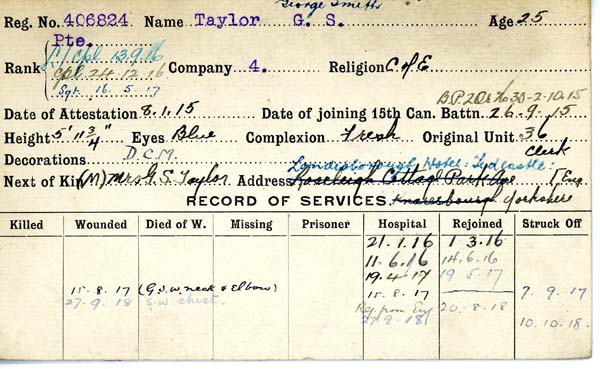 George Smith
Reg. No. 406824 Name Taylor G. S. Age 25
Pte.
L/Cpl 13.9.16
Rank Cpl 24.12.16 Company 4. Religion C of E
Sgt. 16.5.17
B.P.2Or 30-2-10.15
Date of Attestation 8.1.15 Date of joining 15th Can. Battn. 26.9.15
Height 5' 11 3/4" Eyes Blue Complexion Fresh Original Unit 36
Decorations D.C.M. Clerk
Londesborough Hotel
Next of Kin (M) Mrs G. S. Taylor Address Roseleigh Cottage Park Ave Eng
RECORD OF SERVICES. Knaresboro Yorkshire
Killed Wounded Died of W. Missing Prisoner Hospital Rejoined Struck Off
21.1.16 1.3.16
11.6.16 14.6.16
19.4.17 19.5.17
15.8.17 (G.S.W. neck & Elbow) 15.8.17 7.9.17
Rej. from Eng 20.8.18
27.9.18 S.W. chest. 27.9.18 10.10.18.